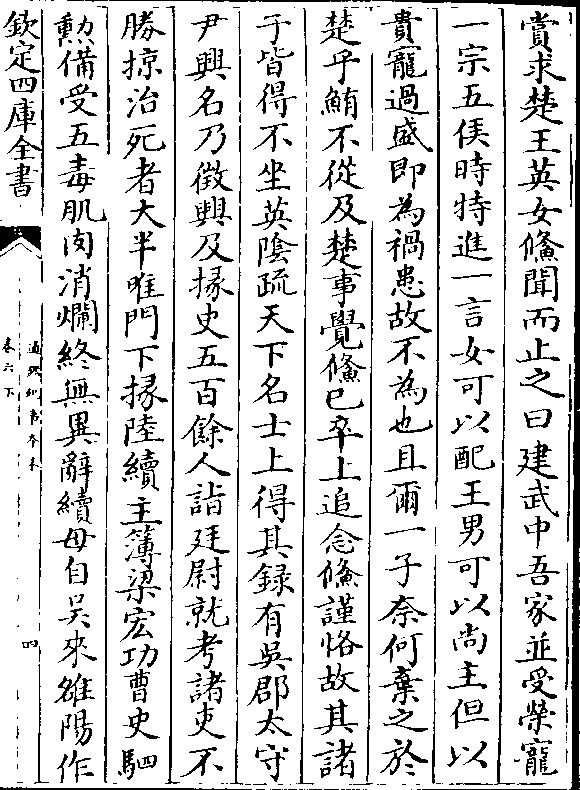 賞求楚王英女鯈聞而止之曰建武中吾家並受榮寵
一宗五侯時特進一言女可以配王男可以尚主但以
貴寵過盛即為禍患故不為也且爾一子奈何棄之於
楚乎鮪不從及楚事覺鯈已卒上追念鯈謹恪故其諸
子皆得不坐英陰疏天下名士上得其録有吳郡太守
尹興名乃徵興及掾史五百餘人詣廷尉就考諸吏不
勝掠治死者大半唯門下掾陸續主簿梁宏功曹史駟
勲備受五毒肌肉消爛終無異辭續母自吳來雒陽作
欽定四庫全書
卷六下
四